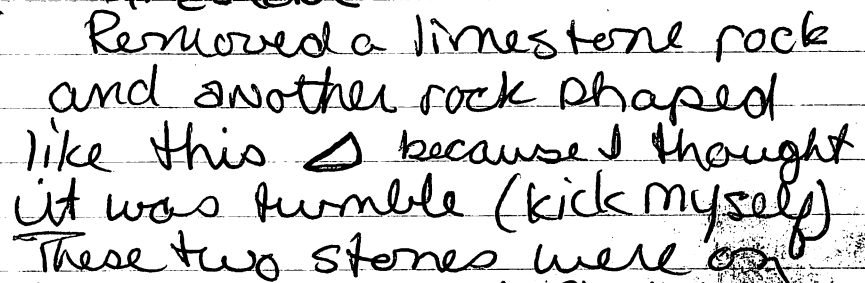 Removed a limestone rock
and another rock shaped
like this △ because I thought
it was tumble (kick myself)
These two stones were on